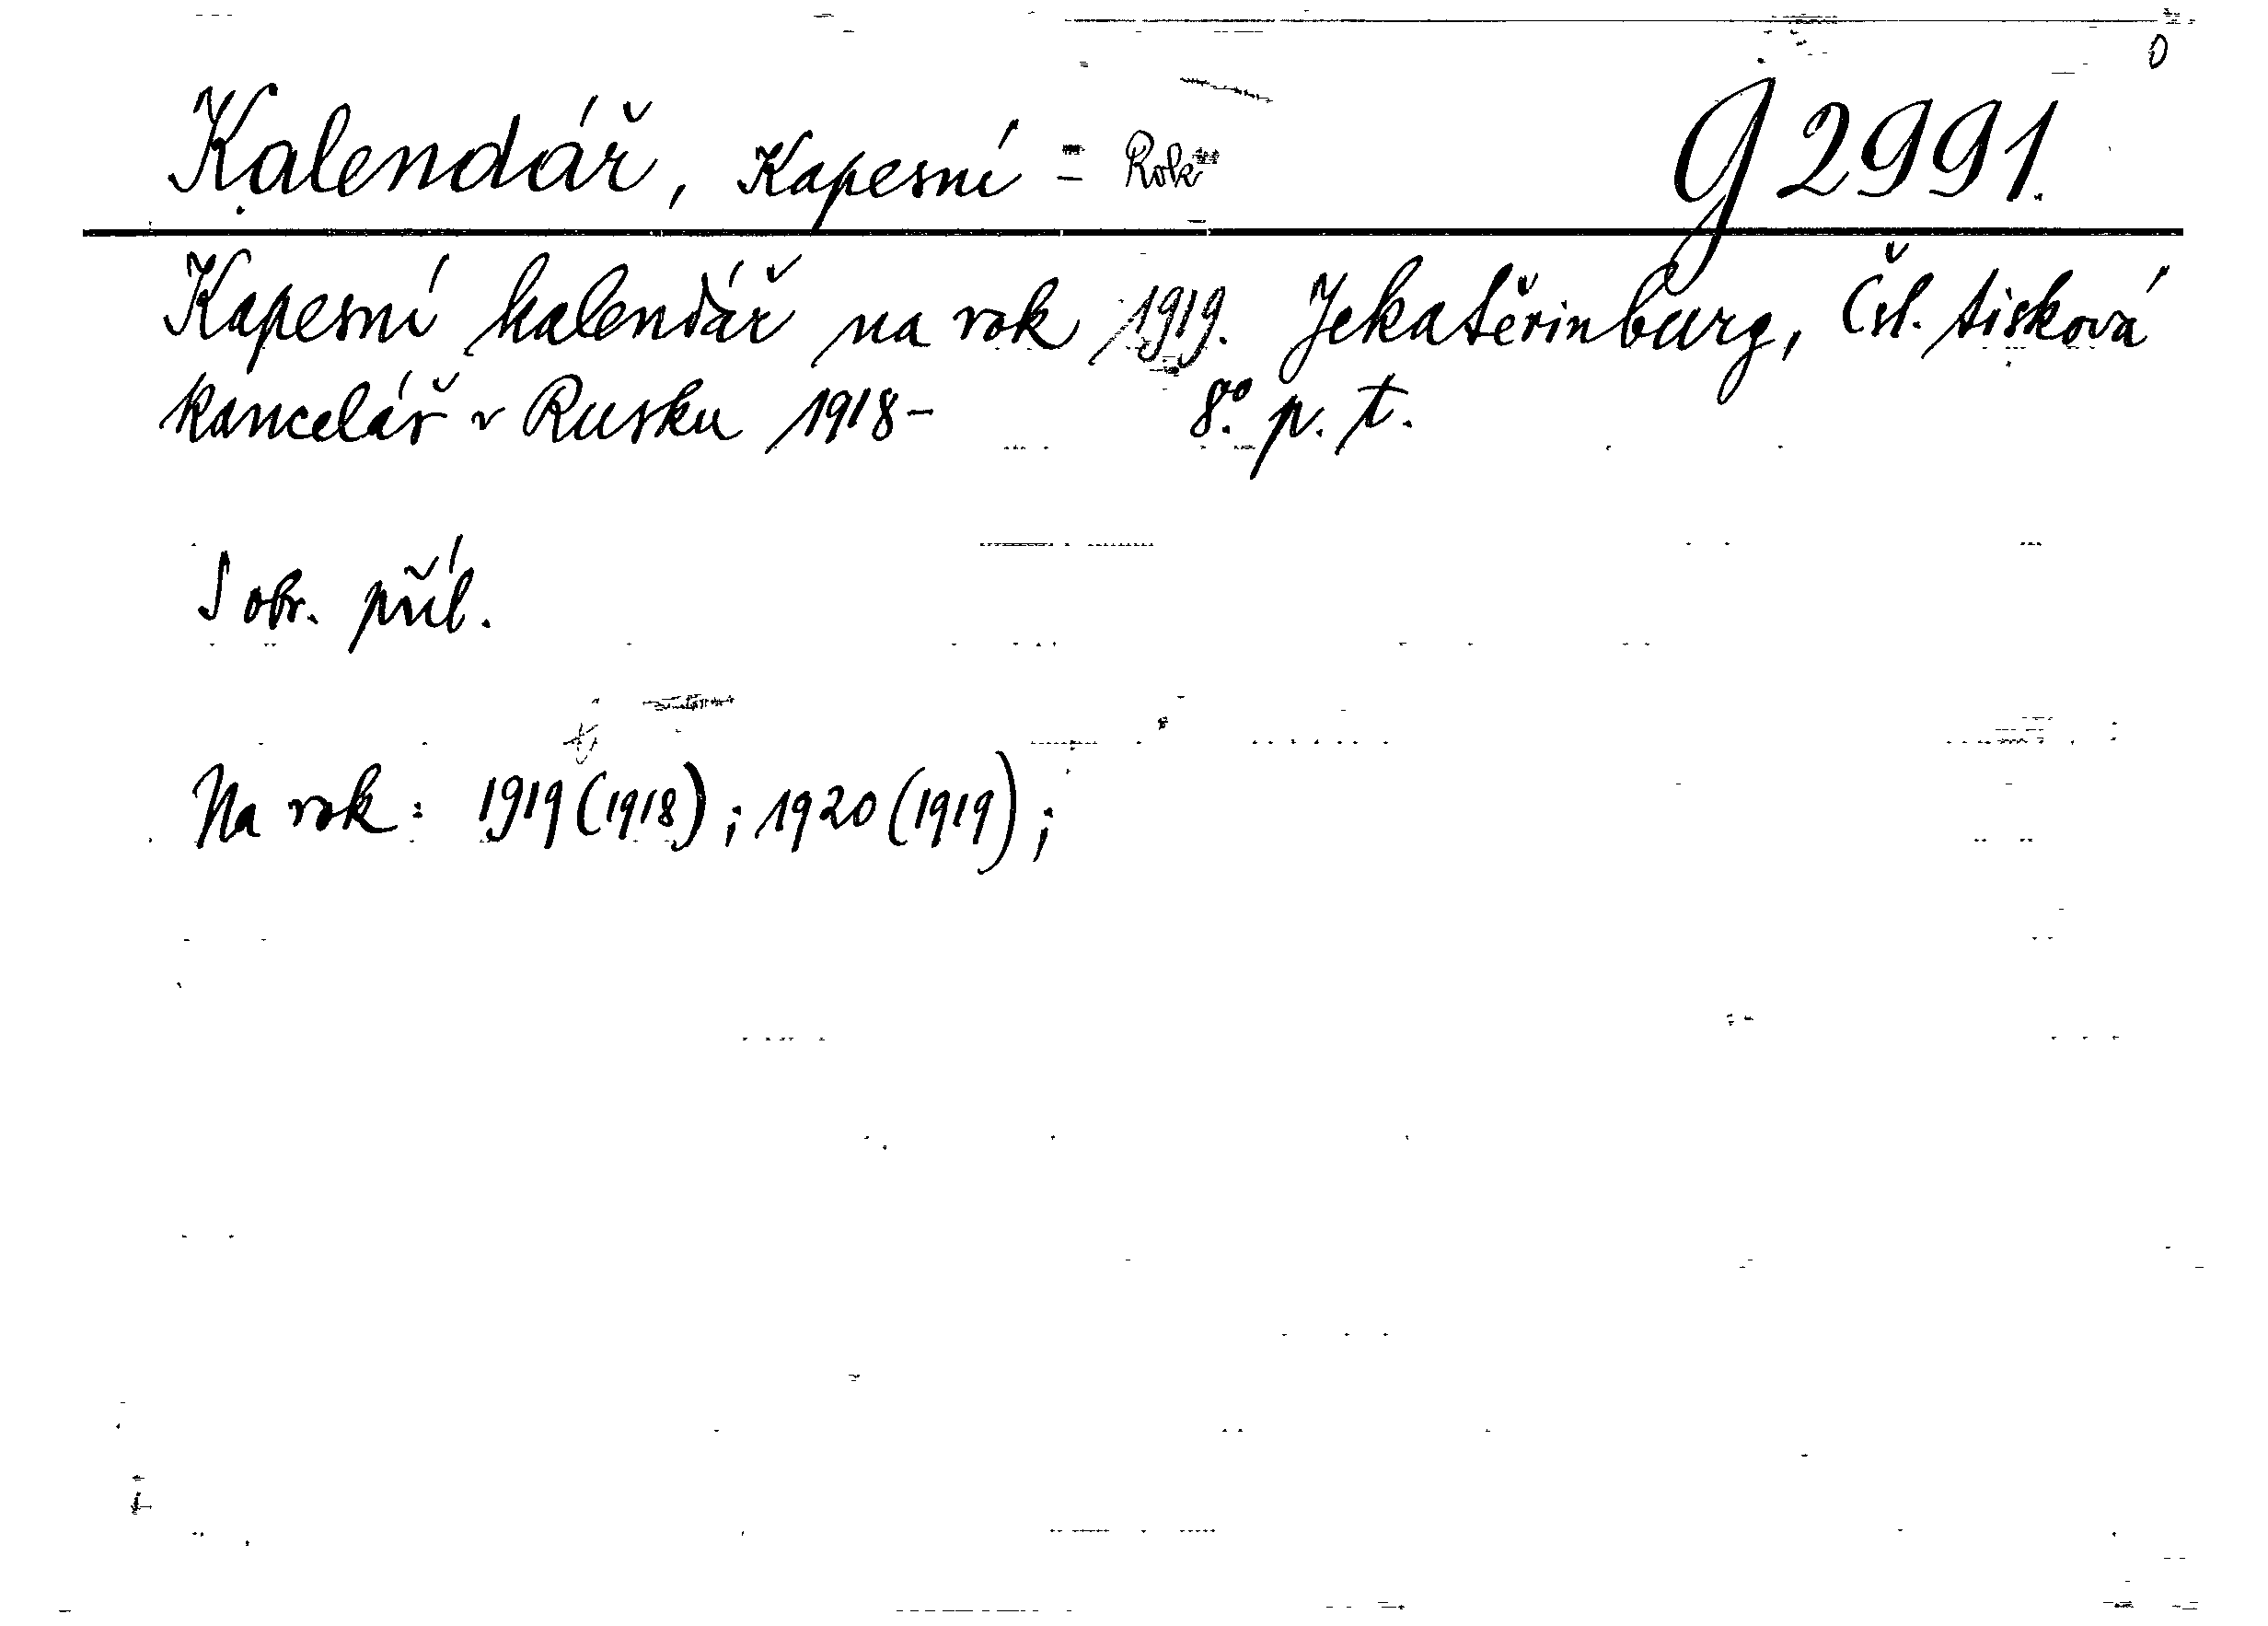 0
Kalendář, Kapesní = Rok G 2991.
Kapesní kalendář na rok 1919. Jekatěrinburg, Čsl. tisková
kancelář v Rusku 1918- 8°. p. t.
S obr. příl.
Na rok: 1919 (1918); 1920 (1919);